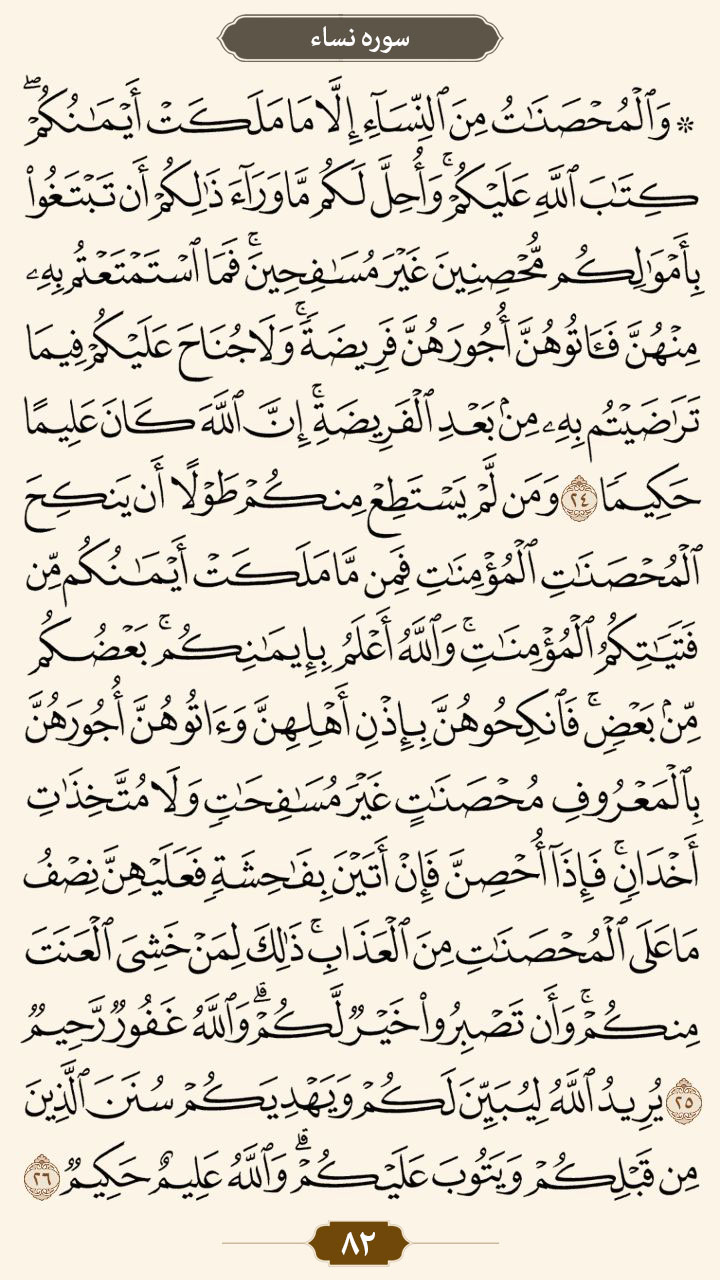 سوره نساء
* وَٱلْمُحْصَنَٰتُ مِنَ ٱلنِّسَآءِ إِلَّا مَا مَلَكَتْ أَيْمَٰنُكُمْ ۖ
كِتَٰبَ ٱللَّهِ عَلَيْكُمْ ۚ وَأُحِلَّ لَكُم مَّا وَرَآءَ ذَٰلِكُمْ أَن تَبْتَغُوا۟
بِأَمْوَٰلِكُم مُّحْصِنِينَ غَيْرَ مُسَٰفِحِينَ ۚ فَمَا ٱسْتَمْتَعْتُم بِهِۦ
مِنْهُنَّ فَـَٔاتُوهُنَّ أُجُورَهُنَّ فَرِيضَةً ۚ وَلَا جُنَاحَ عَلَيْكُمْ فِيمَا
تَرَٰضَيْتُم بِهِۦ مِنۢ بَعْدِ ٱلْفَرِيضَةِ ۚ إِنَّ ٱللَّهَ كَانَ عَلِيمًا
حَكِيمًا ٢٤ وَمَن لَّمْ يَسْتَطِعْ مِنكُمْ طَوْلًا أَن يَنكِحَ
ٱلْمُحْصَنَٰتِ ٱلْمُؤْمِنَٰتِ فَمِن مَّا مَلَكَتْ أَيْمَٰنُكُم مِّن
فَتَيَٰتِكُمُ ٱلْمُؤْمِنَٰتِ ۚ وَٱللَّهُ أَعْلَمُ بِإِيمَٰنِكُم ۚ بَعْضُكُم
مِّنۢ بَعْضٍ ۚ فَٱنكِحُوهُنَّ بِإِذْنِ أَهْلِهِنَّ وَءَاتُوهُنَّ أُجُورَهُنَّ
بِٱلْمَعْرُوفِ مُحْصَنَٰتٍ غَيْرَ مُسَٰفِحَٰتٍ وَلَا مُتَّخِذَٰتِ
أَخْدَانٍ ۚ فَإِذَآ أُحْصِنَّ فَإِنْ أَتَيْنَ بِفَٰحِشَةٍ فَعَلَيْهِنَّ نِصْفُ
مَا عَلَى ٱلْمُحْصَنَٰتِ مِنَ ٱلْعَذَابِ ۚ ذَٰلِكَ لِمَنْ خَشِىَ ٱلْعَنَتَ
مِنكُمْ ۚ وَأَن تَصْبِرُوا۟ خَيْرٌ لَّكُمْ ۗ وَٱللَّهُ غَفُورٌ رَّحِيمٌ
٢٥ يُرِيدُ ٱللَّهُ لِيُبَيِّنَ لَكُمْ وَيَهْدِيَكُمْ سُنَنَ ٱلَّذِينَ
مِن قَبْلِكُمْ وَيَتُوبَ عَلَيْكُمْ ۗ وَٱللَّهُ عَلِيمٌ حَكِيمٌ ٢٦
٨٢